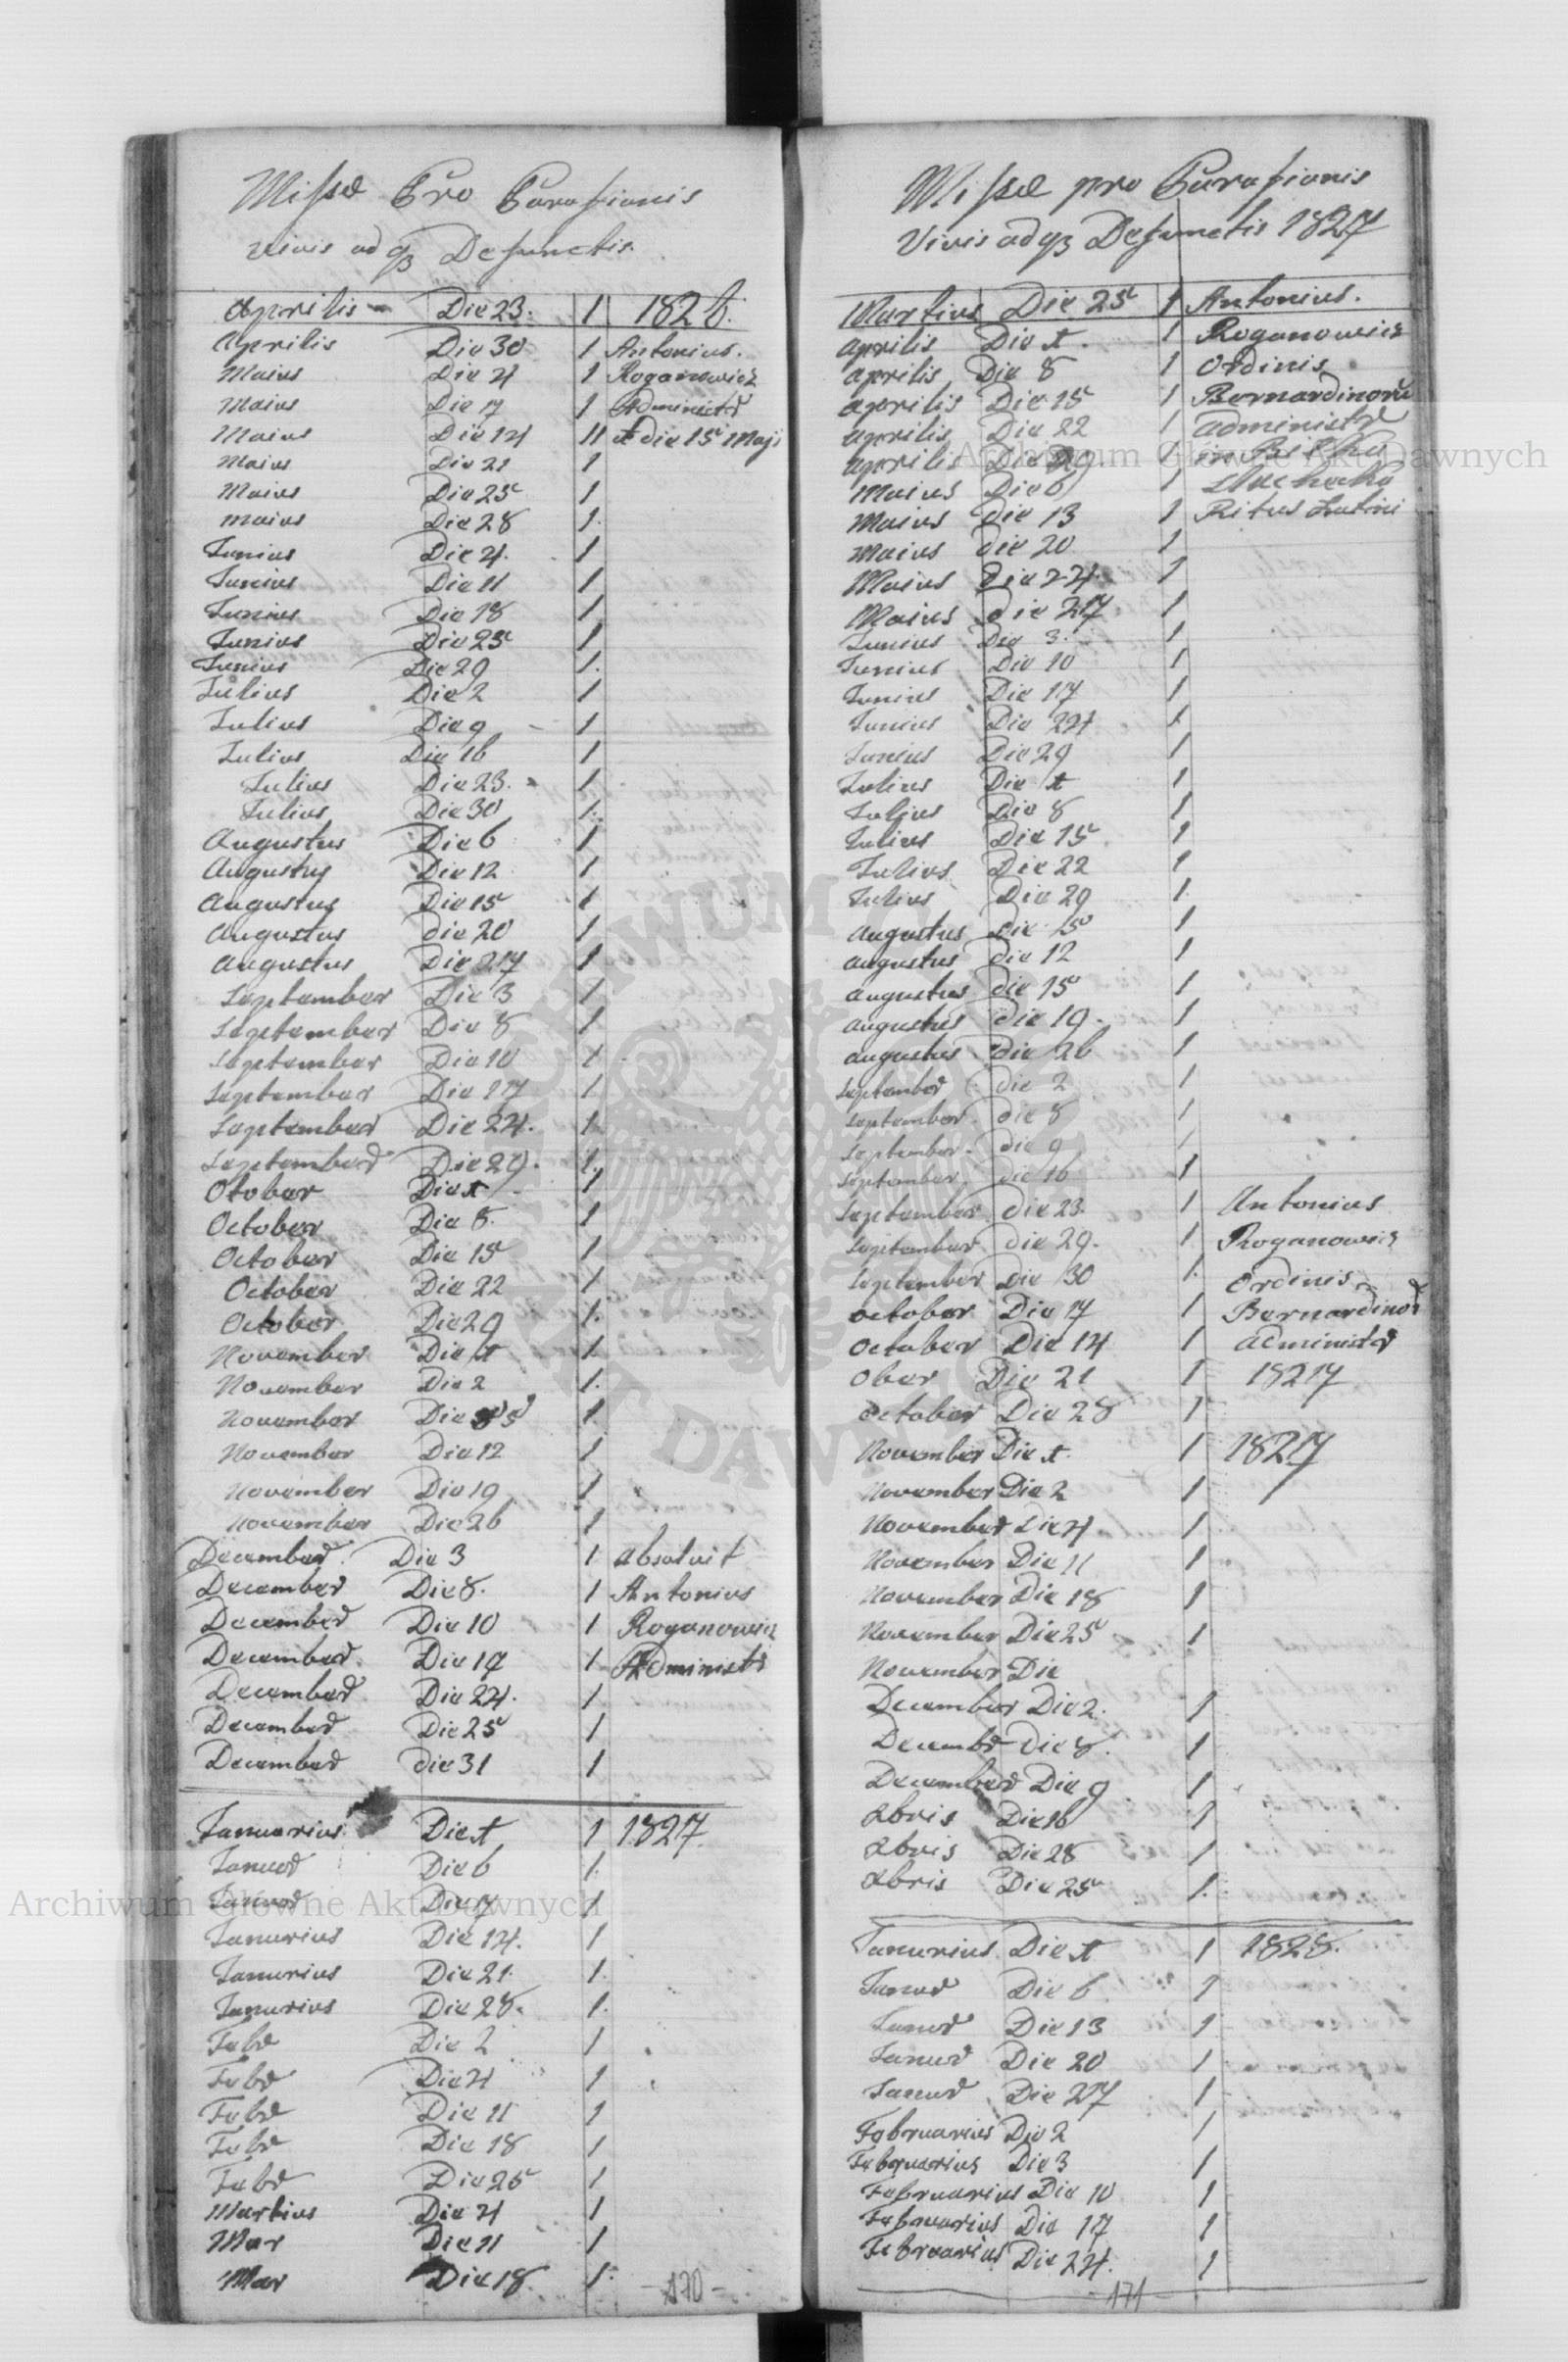 Missæ Pro Parafianis
vivis adq3 Defunctis
Aprilis Die 23. 1 1826.
Aprilis Die 30 1 Antonius.
Maius Die 4 1 Roganowicz
Maius Die 7 1 Administr
Maius Die 14 11 A die 15 Maji
Maius Die 21 1
Maius Die 25 1
Maius Die 28 1.
Iunius Die 4. 1
Iunius Die 11 1
Iunius Die 18 1
Iunius Die 25 1
Iunius Die 29 1.
Iulius Die 2 1
Iulius Die 9 1
Iulius Die 16 1
Iulius Die 23. 1
Iulius Die 30 1.
Augustus Die 6 1
Augustus Die 12 1
Augustus Die 15 1
Augustus Die 20 1
Augustus Die 27 1
September Die 3 1
September Die 8 1
September Die 10 1
September Die 17 1
September Die 24. 1.
September Die 29. 1.
Otober Die 1 1
October Die 8. 1
October Die 15 1
October Die 22 1
October Die 29 1.
November Die 1 1
November Die 2 1.
November Die 5 1.
November Die 12 1
November Die 19 1
November Die 26 1
December Die 3 1 Absolvit
December Die 8. 1 Antonius
December Die 10 1 Roganowicz
December Die 17 1 Administr
December Die 24. 1
December Die 25 1
December Die 31 1
Ianuarius Die 1 1 1827.
Ianuar Die 6 1.
Ianuar Die 7 1
Ianurius Die 14. 1
Ianurius Die 21. 1.
Ianurius Die 28. 1.
Febr Die 2 1
Febr Die 4 1
Febr Die 11 1
Febr Die 18 1
Febr Die 25 1
Martius Die 4 1
Mar Die 11 1
Mar Die 18. 1.
-170-
Missæ pro Parafianis
Vivis adq3 Defunctis 1827
Martius Die 25 1 Antonius.
Aprilis Die 1. 1 Roganowicz
Aprilis Die 8 1 Ordinis
Aprilis Die 15 1 Bernardinorū
Aprilis Die 22 1 administr
Aprilis Die 29. 1 in Bilka
Maius Die 6 1 Szlachecka
Maius Die 13 1 Ritus Latini
Maius Die 20 1
Maius Die 24. 1
Maius Die 27 1
Iunius Die 3. 1
Iunius Die 10 1
Iunius Die 17 1
Iunius Die 24 1
Iunius Die 29 1
Iulius Die 1 1
Iulius Die 8 1
Iulius Die 15 1
Iulius Die 22 1
Iulius Die 29 1.
Augustus Die 5 1
Augustus Die 12 1
Augustus Die 15 1
Augustus Die 19. 1
Augustus Die 26 1
September Die 2 1
September Die 8 1
September Die 9 1
September Die 16 1
September Die 23. 1 Antonius
September Die 29. 1. Roganowicz
September Die 30 1. Ordinis
October Die 7 1 Bernardinor
October Die 14 1 administr
Ober Die 21 1 1827
October Die 28 1
November Die 1. 1 1827
November Die 2 1
November Die 4 1
November Die 11 1
November Die 18 1
November Die 25 1
November Die
December Die 2. 1
Decembr Die 8. 1
December Die 9 1
Xbris Die 16 1
Xbris Die 28 1
Xbris Die 25 1.
Ianurius Die 1 1 1828.
Ianur Die 6 1
Ianur Die 13 1
Ianur Die 20 1
Ianur Die 27 1
Februarius Die 2 1
Februarius Die 3 1
Februarius Die 10 1
Februarius Die 17 1
Februarius Die 24. 1
-171-
Archiwum Główne Akt Dawnych
Archiwum Główne Akt Dawnych